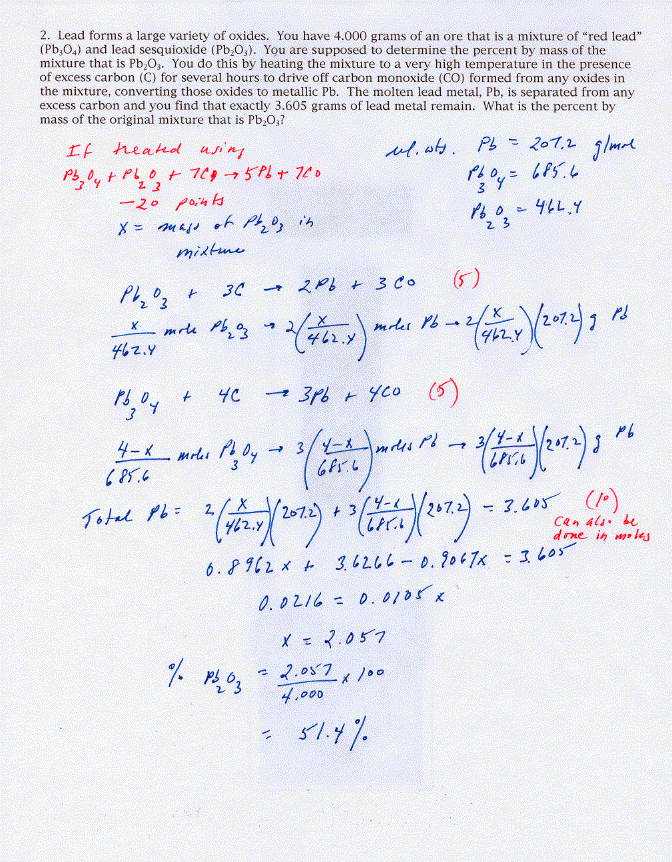 2. Lead forms a large variety of oxides. You have 4.000 grams of an ore that is a mixture of “red lead”
(Pb₃O₄) and lead sesquioxide (Pb₂O₃). You are supposed to determine the percent by mass of the
mixture that is Pb₂O₃. You do this by heating the mixture to a very high temperature in the presence
of excess carbon (C) for several hours to drive off carbon monoxide (CO) formed from any oxides in
the mixture, converting those oxides to metallic Pb. The molten lead metal, Pb, is separated from any
excess carbon and you find that exactly 3.605 grams of lead metal remain. What is the percent by
mass of the original mixture that is Pb₂O₃?
If treated using
Pb₃O₄ + Pb₂O₃ + 7C → 5Pb + 7CO
-20 points
mol. wts. Pb = 207.2 g/mol
Pb₃O₄ = 685.6
Pb₂O₃ = 462.4
X = mass of Pb₂O₃ in
mixture
Pb₂O₃ + 3C → 2Pb + 3CO (5)
X/462.4 mole Pb₂O₃ → 2(X/462.4) moles Pb → 2(X/462.4)(207.2) g Pb
Pb₃O₄ + 4C → 3Pb + 4CO (5)
4-X/685.6 moles Pb₃O₄ → 3(4-X/685.6) moles Pb → 3(4-X/685.6)(207.2) g Pb
Total Pb = 2(X/462.4)(207.2) + 3(4-X/685.6)(207.2) = 3.605 (10)
Can also be
done in moles
0.8962 X + 3.6266 - 0.9067X = 3.605
0.0216 = 0.0105 X
X = 2.057
% Pb₂O₃ = 2.057/4.000 x 100
= 51.4 %